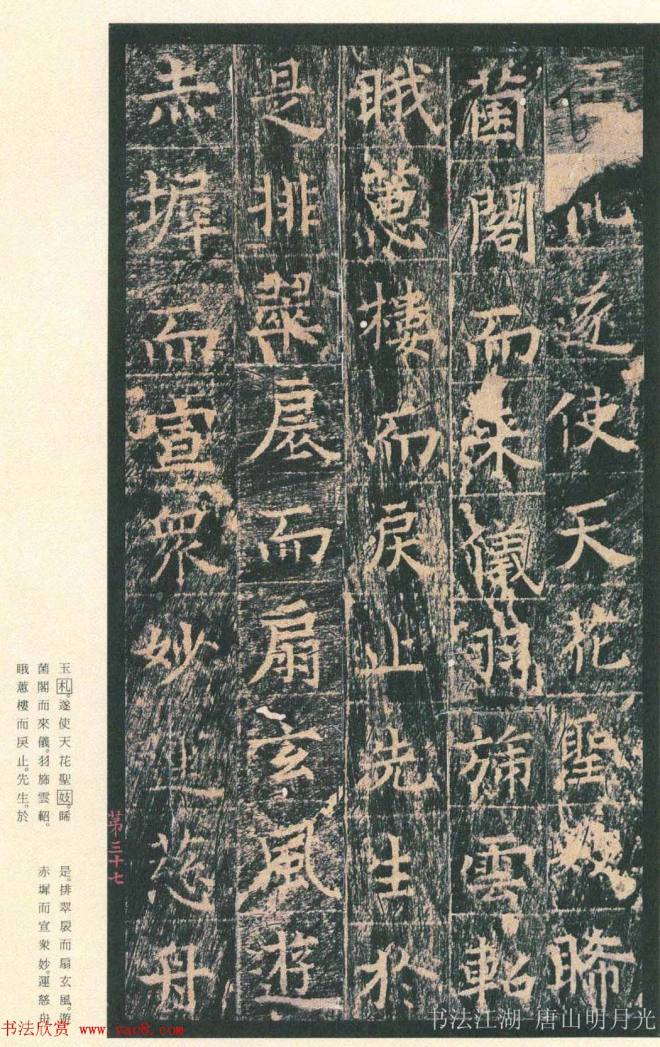 玉札遂使天花聖妓睎
菌閣而來儀羽旆雲軺
睋蕙樓而戾止先生於
是排翠扆而扇玄風遊
赤墀而宣衆妙運慈舟
玉札。遂使天花聖妓。睎
菌閣而來儀。羽旆雲軺。
睋蕙樓而戾止。先生。於
是。排翠扆而扇玄風。遊
赤墀而宣衆妙。運慈舟
第三十七
书法欣赏 www.yac8.com
书法江湖-唐山明月光